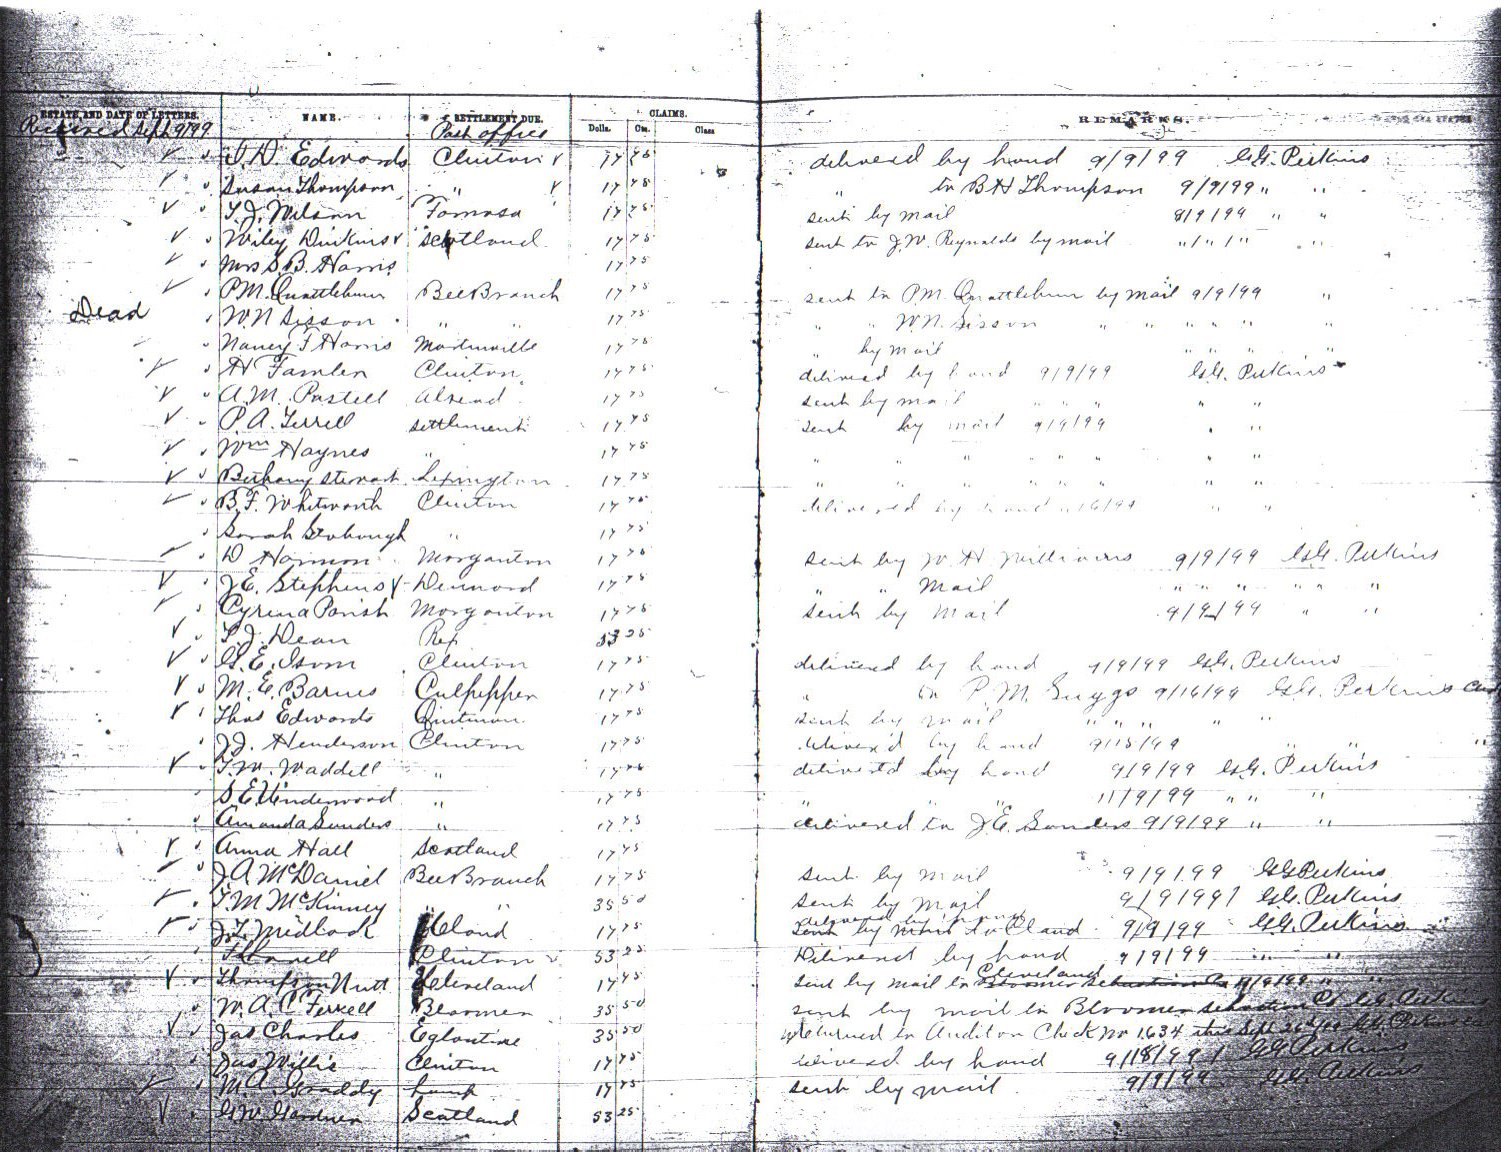 ESTATE AND DATE OF LETTERS. NAME. SETTLEMENT DUE. CLAIMS. REMARKS.
Dolls. Cts. Class
Received Sept 9/99 Post office
Edwards Clinton 17 75 delivered by hand 9/9/99 G.G. Perkins
Susan Thompson " 17 75 " to B H Thompson 9/9/99 " "
T. J. Wilson Formosa 17 75 sent by mail 8/9/99 " "
Wiley Dinkins Scotland 17 75 sent to J. W. Reynolds by mail " / " / " " "
Mrs S. B. Harris 17 75
P. M. Quattlebum Bee Branch 17 75 sent to P. M. Quattlebum by mail 9/9/99 "
Dead W. N. Sisson " " 17 75 " " W. N. Sisson " " " " " "
Nancy T Harris Martinville 17 75 " by mail " " " "
H 17 75 delivered by hand 9/9/99 G.G. Perkins
Clinton
A. M. Pastell Alread 17 75 sent by mail " " " " "
P. A. Terrell settlement 17 75 sent by mail 9/9/99 " "
Wm Haynes " 17 75 " " " " " " " "
Bethany Stewart Lexington 17 75 " " " " " " " "
B. F. Whitworth Clinton 17 75 delivered by hand " "
Sarah " 17 75
D Harmon Morganton 17 75 sent by W. H Williams 9/9/99 G.G. Perkins
J. E. Stephens Dennard 17 75 " " Mail " " " " " "
Cyrena Parish Morganton 17 75 sent by mail 9/9/99 " "
T. J. Dean Rex 53 25
G. E. Isom Clinton 17 75 delivered by hand 9/9/99 G.G. Perkins
M. E. Barnes Culpepper 17 75 " to P. M. Suggs 9/16/99 G.G. Perkins
Thos Edwards Quitman 17 75 sent by mail " " " " "
J. J. Henderson Clinton 17 75 delivered by hand 9/15/99 " " "
T. W. Waddell " 17 75 delivered by hand 9/9/99 G.G. Perkins
S. E. Underwood " 17 75 " " " 11/9/99 " " "
Amanda Sanders " 17 75 delivered to J. E. Sanders 9/9/99 " "
Anna Hall Scotland 17 75
J A McDaniel Bee Branch 17 75 sent by mail 9/9/99 G G Perkins
T. M McKinney " " 35 50 sent by mail 9/9/99 G.G. Perkins
J. T. Medlock 17 75 sent by mail to Eland 9/9/99 G.G. Perkins
Clinton 53 25 Delivered by hand 9/9/99 " "
Thompson Nutt Cleveland 17 75 sent by mail to Cleveland " "
W. A. C. Terrell Bloomer 35 50 sent by mail to Bloomer Sebastian Co G.G. Perkins
Jas Charles Eglantine 35 50 returned to Auditor Check No 1634 this Sept 26 G.G. Perkins
Jas Willis Clinton 17 75 delivered by hand 9/18/99 G G Perkins
M. A. Graddy 17 75 sent by mail 9/9/99 G.G. Perkins
G W Gardner Scotland 53 25